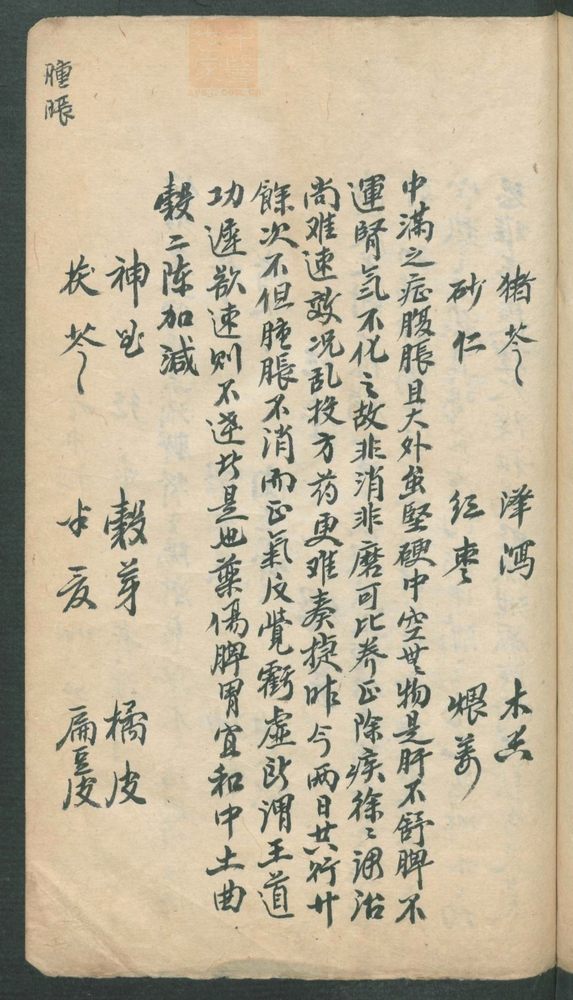 腫脹
猪苓 泽瀉 木香
砂仁 红枣 煨姜
中滿之症腹脹且大外虽堅硬中空無物是肝不舒脾不
運腎氣不化之故非消非磨可比养正除疾徐徐調治
尚难速效况乱投方药更难奏捷昨今两日共行廿
餘次不但腫脹不消而正氣反覺虧虛所謂王道
功遲欲速則不達者是也藥傷脾胃宜和中土曲
穀二陈加減
神曲 穀芽 橘皮
茯苓 半夏 扁豆皮